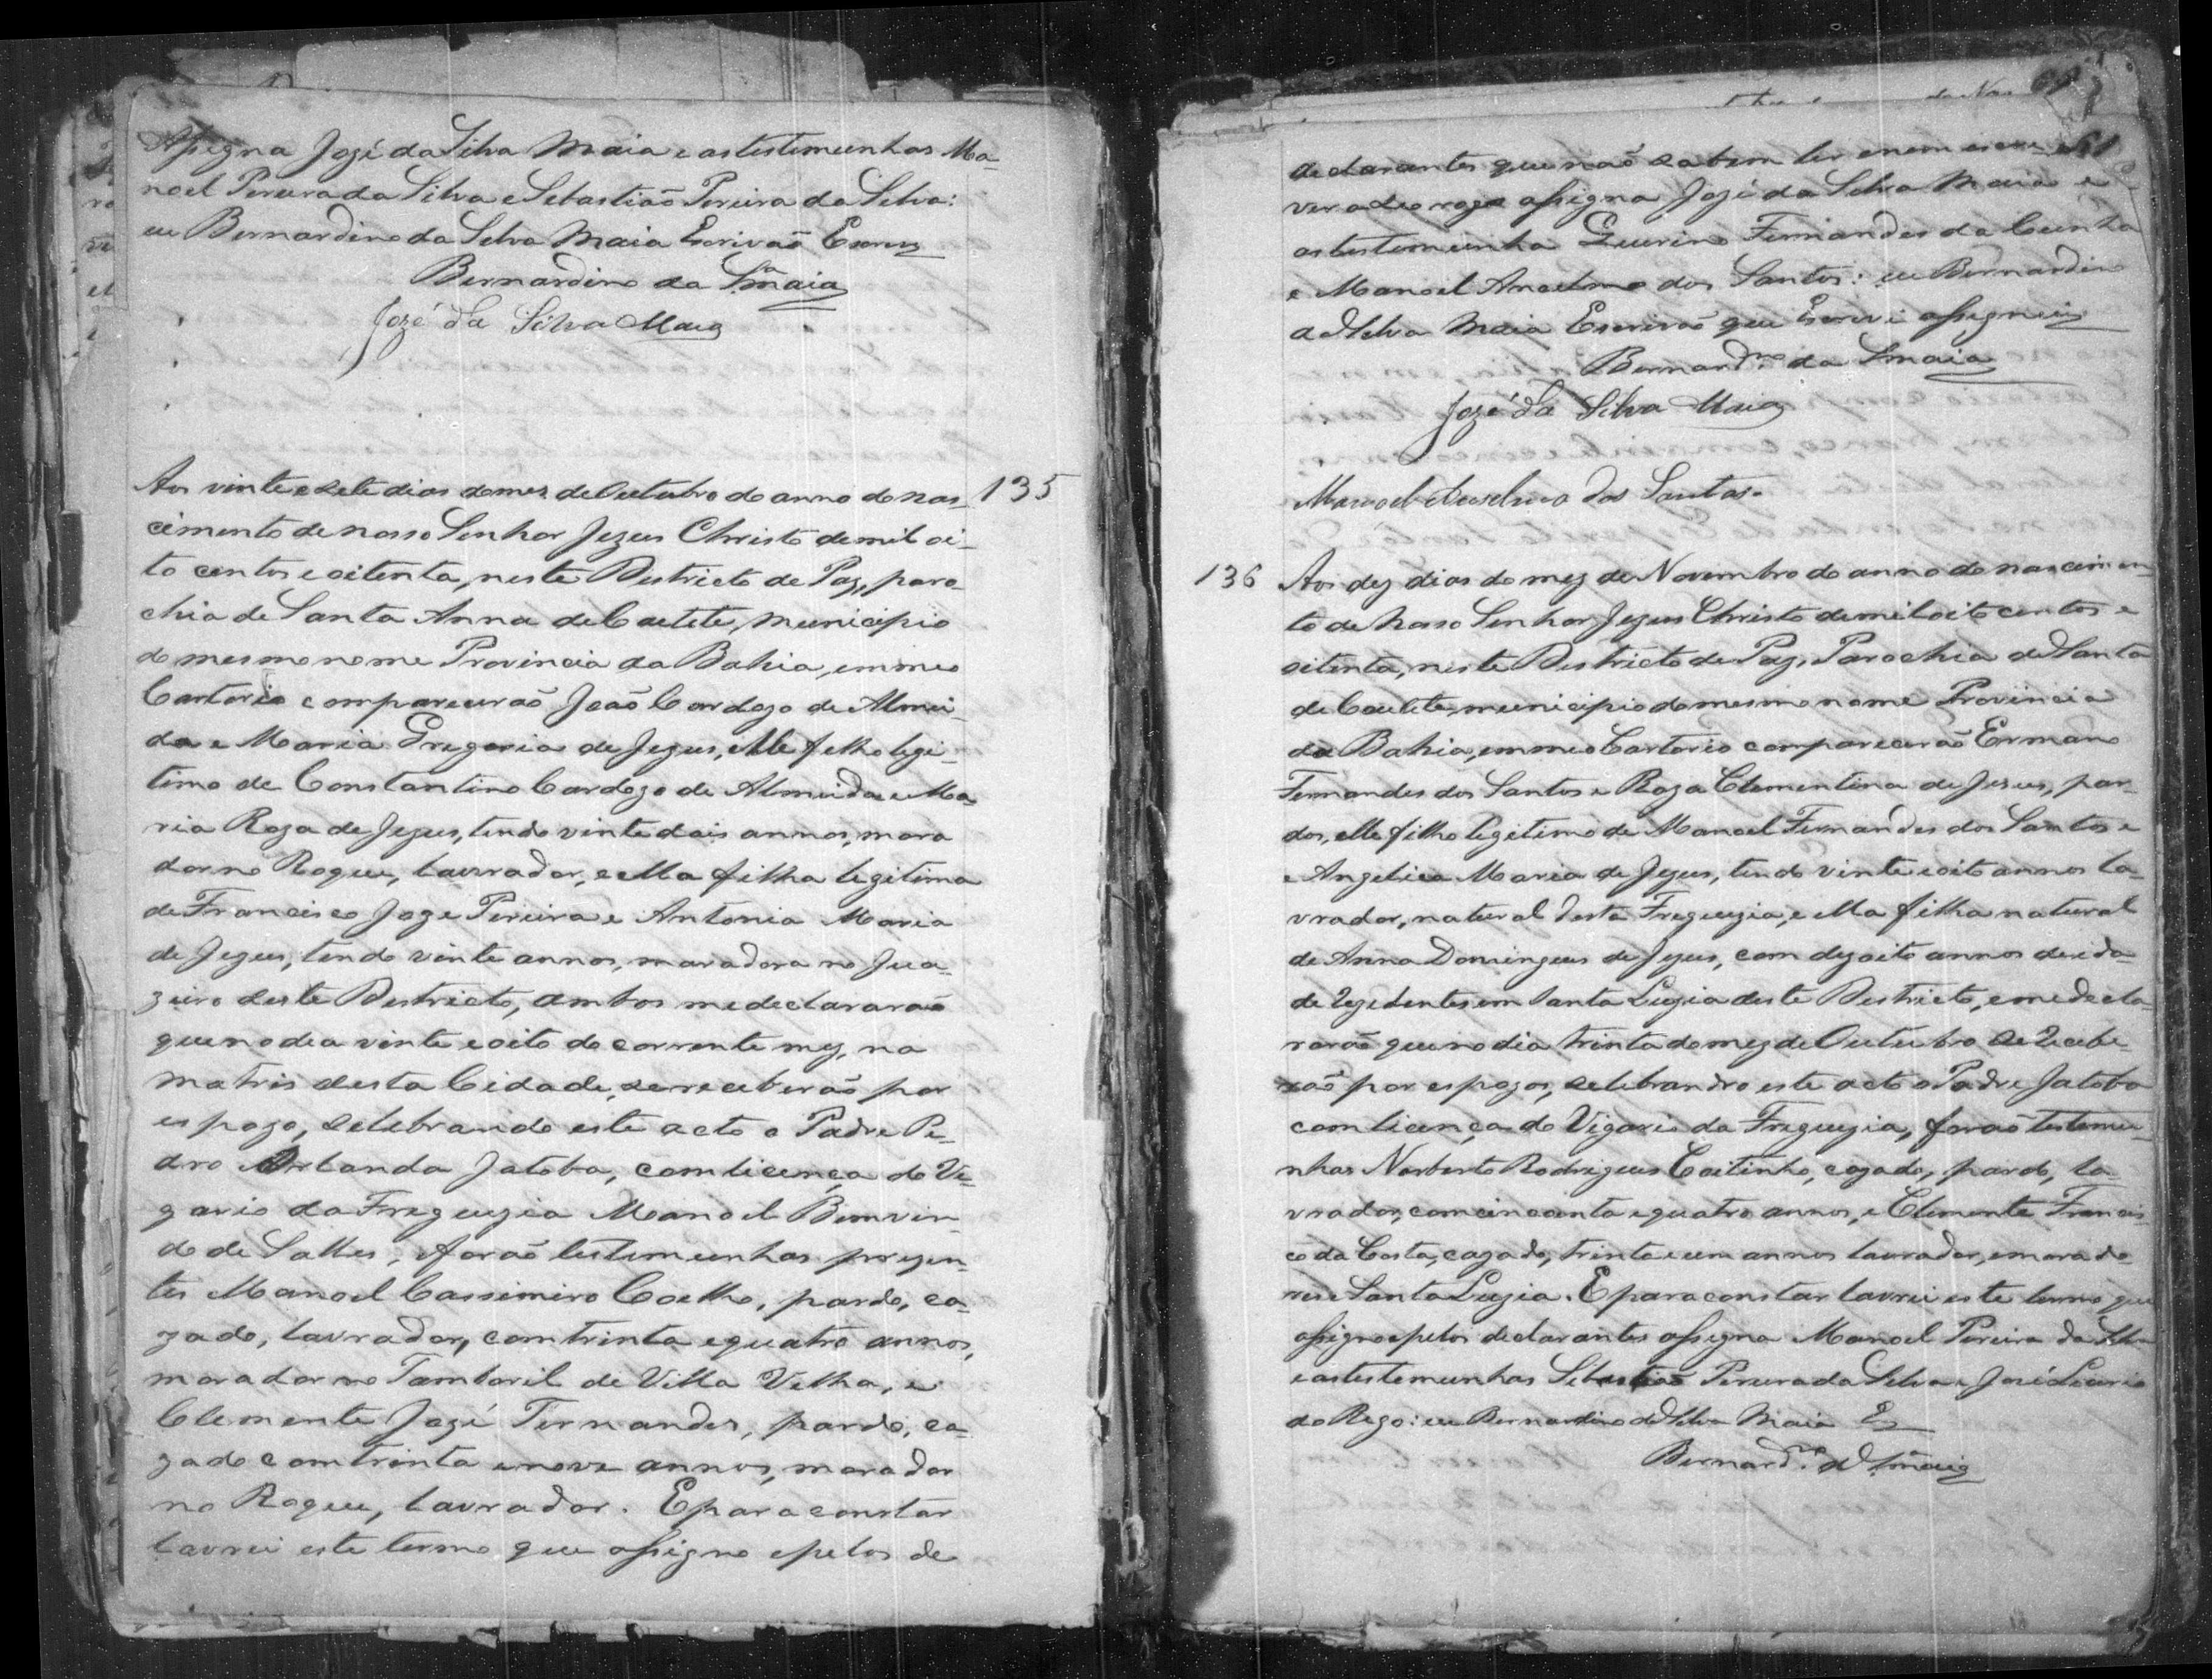 Assigna Jozé da Silva Maia e as testemunhas Ma-
noel Pereira da Silva e Sebastião Pereira da Silva:
eu Bernardino da Silva Maia Escrivão Escrevy
Bernardino da Sª Maia
Jozé da Silva Maia
Aos vinte e sete dias do mez de Outubro do anno do nas- 135
cimento de nosso Senhor Jezus Christo de mil oi-
to centos e oitenta, neste Destricto de Paz, paro-
chia de Santa Anna de Caetete, municipio
do mesmo nome Provincia da Bahia, em meo
Cartorio comparecerão João Cardozo de Almei-
da e Maria Gregoria de Jezus, elle filho legi-
timo de Constantino Cardozo de Almeida e Ma
ria Roza de Jezus, tendo vinte dois annos, mora
dor no Roque, lavrador, e ella filha legitima
de Francisco Joze Pereira e Antonia Maria
de Jezus, tendo vinte annos, moradora no Jua-
zeiro deste Destricto, ambos me declararão
que no dia vinte e oito do corrente mez, na
matris desta Cidade, se receberão por
espozo, selebrando este acto o Padre Pe-
dro Orlanda Jatoba, com licença do Vi-
gario da Freguezia Manoel Bemvin
do de Salles, forão testemunhas prezen-
tes Manoel Cassimiro Coelho, pardo, ca-
zado, lavrador, com trinta e quatro annos,
morador no Tamboril de Villa Velha, e
Clemente Jozé Fernandes, pardo, ca-
zado com trinta e nove annos, morador
no Roque, lavrador. E para constar
lavrei este termo que assigno e pelos de
61
declarantes que não sabem ler e nem escre-
ver a seo rogo assigna Jozé da Silva Maia e
as testemunha Fernandes da Cunha
e Manoel Ancelmo dos Santos: eu Bernardino
da Silva Maia Escrivão que Escrevi assignei
Bernardno da Sª Maia
Jozé da Silva Maia
Manoel Anselmo dos Santos.
136 Aos dez dias do mez de Novembro do anno do nascimen-
to de Nosso Senhor Jezus Christo de mil oito centos e
oitenta, neste Destricto de Paz, Parochia de Santa
de Caetete, municipio do mesmo nome Provincia
da Bahia, em meo Cartorio comparecerão Ermano
Fernandes dos Santos e Roza Clementina de Jesus, par-
dos, elle filho legitimo de Manoel Fernandes dos Santos e
e Angelica Maria de Jezus, tendo vinte e oito annos la-
vrador, natural desta Freguezia, e ella filha natural
de Anna Domingues de Jezus, com dezoito annos de ida-
de rezidentes em Santa Luzia deste Destricto, e me decla-
rarão que no dia trinta do mez de Outubro se recebe-
rão por espozos, selebrando este acto o Padre Jatoba
com licença do Vigario da Freguezia, forão testemu-
nhas Norberto Rodrigues Coitinho, cazado, pardo, la-
vrador, com cincoenta e quatro annos, e Clemente Francis-
co da Costa, cazado, trinta e um annos lavrador, e morado
res e Santa Luzia. E para constar lavrei este termo que
assigno e pelos declarantes assigna Manoel Pereira da Silva
e as testemunhas Sebastião Pereira da Silva e José
do Rego: eu Bernardino da Silva Maia E
Bernardno da Sª Maia